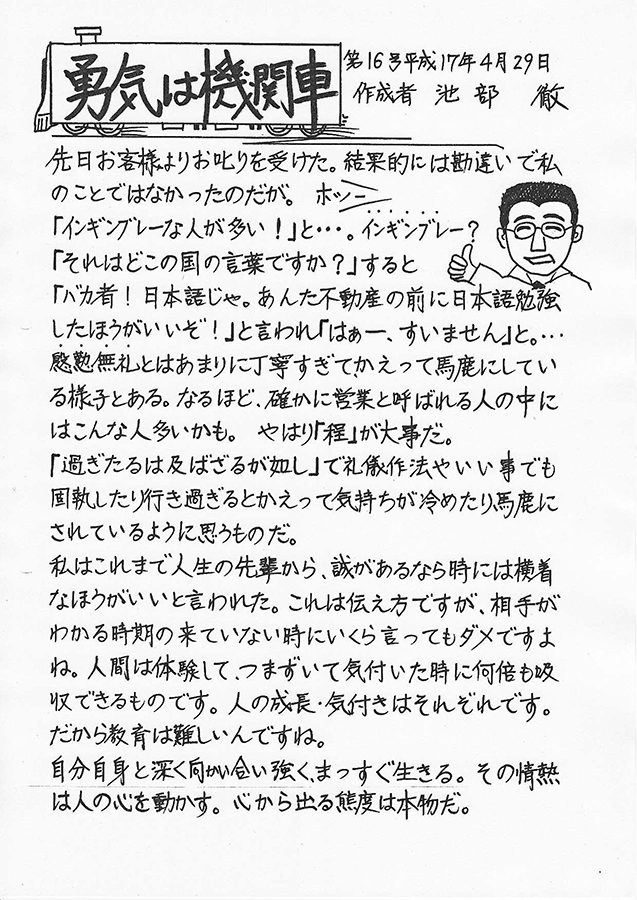 勇気は機関車
第16号平成17年4月29日
作成者 池部 徹
先日お客様よりお叱りを受けた。結果的には勘違いで私
のことではなかったのだが。 ホッー
「インギンブレーな人が多い！」と・・・。インギンブレー？
「それはどこの国の言葉ですか？」すると
「バカ者！日本語じゃ。あんた不動産の前に日本語勉強
したほうがいいぞ！」と言われ「はぁー、すいません」と。・・・
慇懃無礼とはあまりに丁寧すぎてかえって馬鹿にしてい
る様子とある。なるほど、確かに営業と呼ばれる人の中に
はこんな人多いかも。 やはり「程」が大事だ。
「過ぎたるは及ばざるが如し」で礼儀作法やいい事でも
固執したり行き過ぎるとかえって気持ちが冷めたり馬鹿に
されているように思うものだ。
私はこれまで人生の先輩から、誠があるなら時には横着
なほうがいいと言われた。これは伝え方ですが、相手が
わかる時期の来ていない時にいくら言ってもダメですよ
ね。人間は体験して、つまずいて気付いた時に何倍も吸
収できるものです。人の成長・気付きはそれぞれです。
だから教育は難しいんですね。
自分自身と深く向かい合い強く、まっすぐ生きる。その情熱
は人の心を動かす。心から出る態度は本物だ。